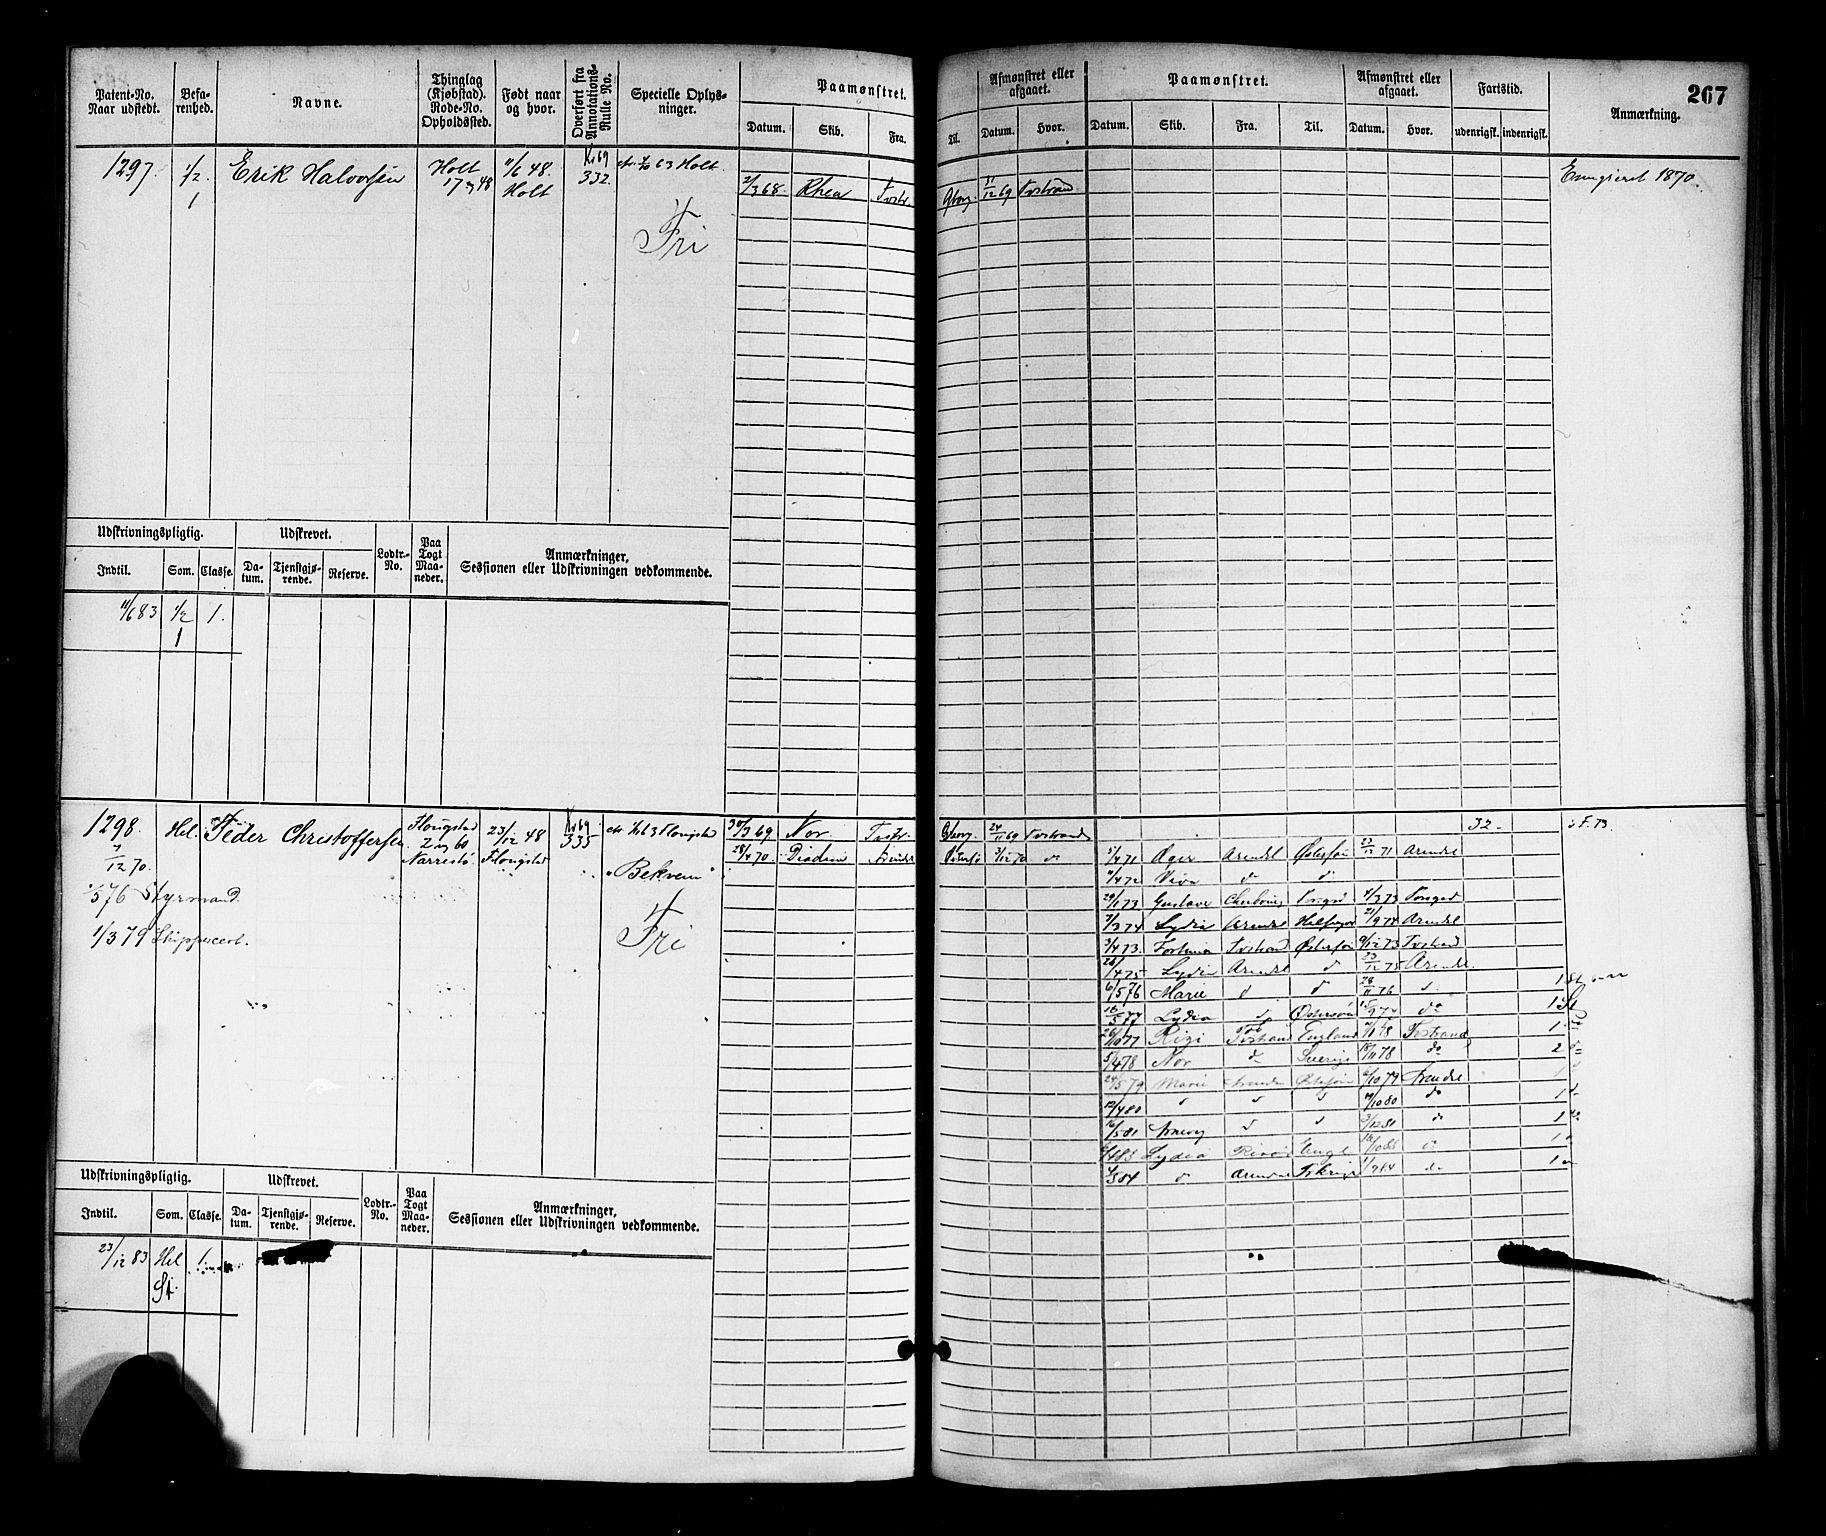 267
Patent-No. Naar udstedt.
Befarenhed.
Navne.
Thinglag (Kjøbstad). Rode-No. Opholdssted.
Født naar og hvor.
Overført fra Annotations-Rulle No.
Specielle Oplysninger.
Paamønstret.
Datum. Skib. Fra. Til.
Afmønstret eller afgaaet.
Datum. Hvor.
Paamønstret.
Datum. Skib. Fra. Til.
Afmønstret eller afgaaet.
Datum. Hvor.
Fartstid.
udenrigsk. indenrigsk.
Anmærkning.
1297. 1/2 Erik Halvorsen Holt 11/6 48. 69 63 Holt
1 17 48 Holt 332. 2/3 68. Rhea Tvstr. Gborg. 31/12 69 Tvstrand Emigreret 1870.
Fri
Udskrivningspligtig. Udskrevet. Lodtr.-No. Paa Togt Maaneder. Anmærkninger, Sessionen eller Udskrivningen vedkommende.
Indtil. Som. Classe. Datum. Tjenstgjørende. Reserve.
11/6 83 1/2 1.
1
1298. Hel. Peder Christoffersen Flougstad 23/12 48 69 335 Flougstad 30/3 69 Nor. Tvstr. Gborg. 24/11 69 Tvstrand 32. F. 73.
7/12 70. 2 60 Narrestø Flougstad "Bekvem" 28/4 70. Diadem Arendal Østersø 3/12 70 do
5/4 71 Øger Arendal Østersøen 23/12 71 Arendal
576 Styrmand. 11/4 72 d d
29/1 73 Gustave Cherbourg 4/3 73
1/3 79 Skippercert. Fri 3/3 74 Lydia Arendal 21/9 74 Arendal
3/4 73. Fortuna Tvstrand Østersøen 9/12 73 Tvstrand
26/4 75 Lydia Arendal d 23/12 75 Arendal
6/5 76 Marie d d 28/11 76 d 1 St
16/5 77 Lydia d Østersøen 15/9 77 do 1 St
26/10 77 Rigi Tvstrand England 7/1 78 Tvstrand 1 do
5/4 78 Nor do Sverige 18/11 78 do 2 do
24/5 79 Marie Arendal Østersøen 6/10 79 Arendal 1
12/4 80 d d d 19/10 80 do 1 d
16/5 81 d d 3/12 81 do 1 do
4 83 Lydia Engl 18/10 83 d 1
84 d Arendal 84 do 1
Udskrivningspligtig. Udskrevet. Lodtr.-No. Paa Togt Maaneder. Anmærkninger, Sessionen eller Udskrivningen vedkommende.
Indtil. Som. Classe. Datum. Tjenstgjørende. Reserve.
23/12 83 Hel 1.
St.